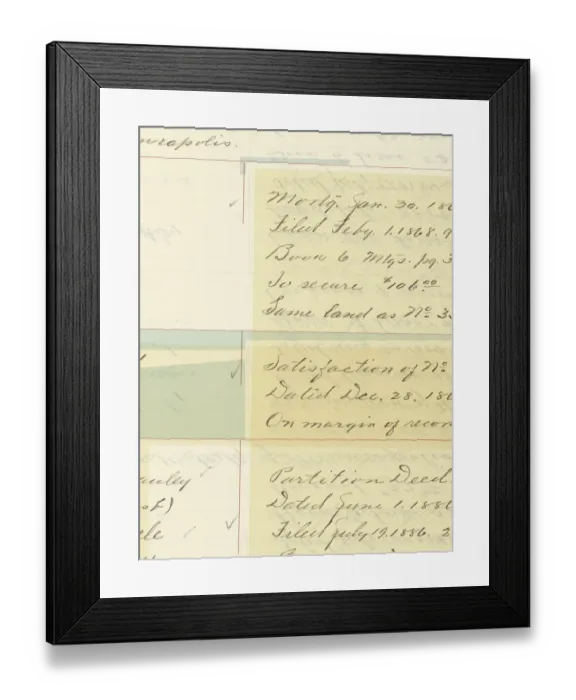 neapolis.
Mortg. Jan. 30. 186
Filed Feby 1.1868. 9
Book 6 Mtgs. pg. 3
To secure $106.00
Same land as No 3.
Satisfaction of No
Dated Dec. 28. 186
On margin of recor
auley
Partition Deed.
of)
Dated June 1. 1886
le
Filed July 19. 1886. 2